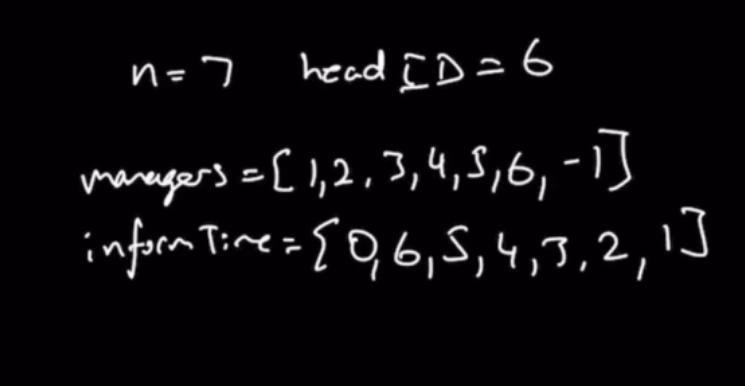 n=7 head ID=6
managers=[1,2,3,4,5,6,-1]
informTime=[0,6,5,4,3,2,1]